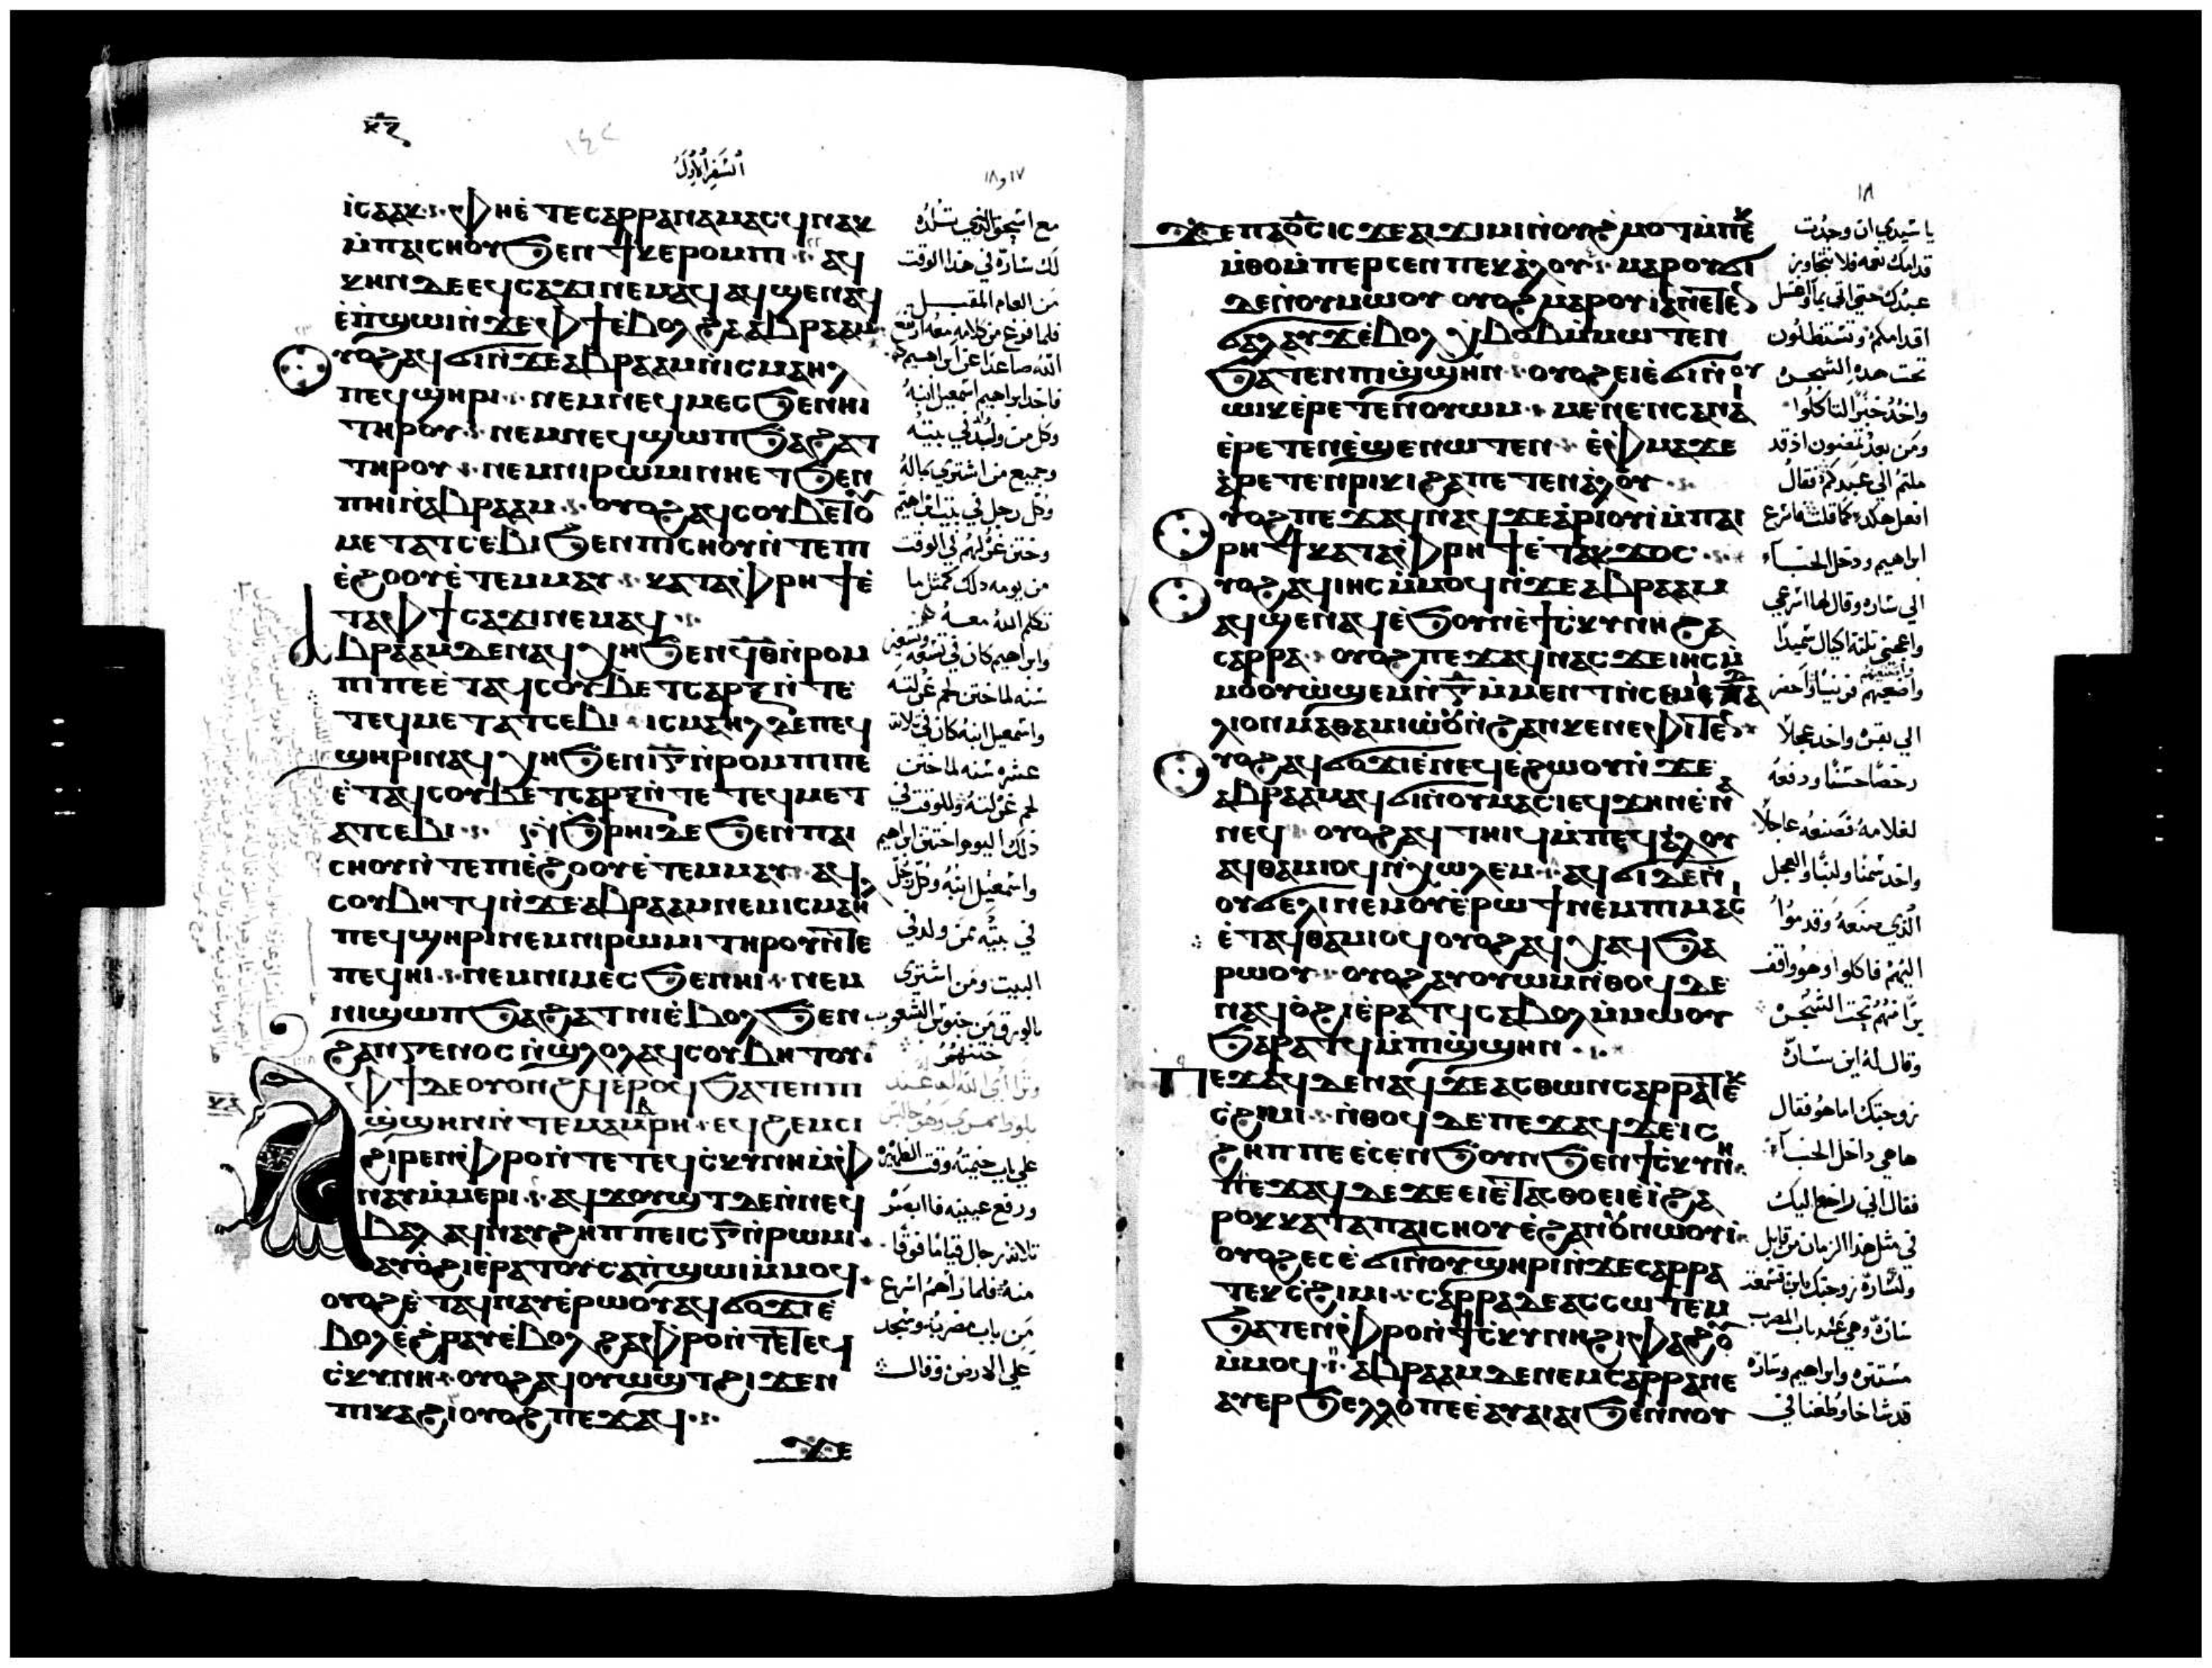 السفر الأول
١٧ و ١٨
ⲓⲥⲁⲁⲕ · ⲫⲏⲉ̀ⲧⲉⲥⲁⲣⲣⲁⲛⲁⲙⲁⲥϥⲛⲁⲕ
ⲙ̀ⲡⲁⲓⲥⲏⲟⲩϧⲉⲛϯⲕⲉⲣⲟⲙⲡⲓ · ⲁϥ
ⲕⲏⲛⲇⲉⲉϥⲥⲁϫⲓⲛⲉⲙⲁϥⲁϥϣⲉⲛⲁϥ
ⲉ̀ⲡ̀ϣⲱⲓⲛ̀ϫⲉⲫϯⲉ̀ⲃⲟⲗϩⲁⲁⲃⲣⲁⲁⲙ
ⲩⲟϩⲁϥϭⲓⲛ̀ϫⲉⲁⲃⲣⲁⲁⲙⲛ̀ⲓⲥⲙⲁⲏⲗ
ⲡⲉϥϣⲏⲣⲓ · ⲛⲉⲙⲛⲉϥⲙⲉⲥϧⲉⲛⲏⲓ
ⲧⲏⲣⲟⲩ · ⲛⲉⲙⲛⲉϥϣⲱⲡϧⲁϩⲁⲧ
ⲧⲏⲣⲟⲩ · ⲛⲉⲙⲛⲓⲣⲱⲙⲓⲛⲏⲉⲧϧⲉⲛ
ⲡⲏⲓⲛ̀ⲁⲃⲣⲁⲁⲙ · ⲟⲩⲟϩⲁϥⲥⲟⲩⲃⲉⲧⲟⲩ
ⲙⲉⲧⲁⲧⲥⲉⲃⲓϧⲉⲛⲡⲓⲥⲏⲟⲩⲛ̀ⲧⲉⲡⲓ
ⲉ̀ϩⲟⲟⲩⲉ̀ⲧⲉⲙⲙⲁⲩ · ⲕⲁⲧⲁⲫⲣⲏϯⲉ̀
ⲧⲁⲫϯⲥⲁϫⲓⲛⲉⲙⲁϥ ·
ⲁⲃⲣⲁⲁⲙⲇⲉⲛⲁϥⲭⲏϧⲉⲛϥⲑⲛ̀ⲣⲟⲙ
ⲡⲓⲡⲉⲉ̀ⲧⲁϥⲥⲟⲩⲃⲉⲧⲥⲁⲣⲝⲛ̀ⲧⲉ
ⲧⲉϥⲙⲉⲧⲁⲧⲥⲉⲃⲓ · ⲓⲥⲙⲁⲏⲗⲇⲉⲡⲉϥ
ϣⲏⲣⲓⲛⲁϥⲭⲏϧⲉⲛⲓⲅⲛ̀ⲣⲟⲙⲡⲓⲡⲉ
ⲉ̀ⲧⲁϥⲥⲟⲩⲃⲉⲧⲥⲁⲣⲝⲛ̀ⲧⲉⲧⲉϥⲙⲉⲧ
ⲁⲧⲥⲉⲃⲓ · ⲛ̀ϧⲣⲏⲓⲇⲉϧⲉⲛⲡⲁⲓ
ⲥⲏⲟⲩⲛ̀ⲧⲉⲡⲓⲉ̀ϩⲟⲟⲩⲉ̀ⲧⲉⲙⲙⲁⲩ · ⲁϥ
ⲥⲟⲩⲃⲏⲧϥⲛ̀ϫⲉⲁⲃⲣⲁⲁⲙⲛⲉⲙⲓⲥⲙⲁⲏⲗ
ⲡⲉϥϣⲏⲣⲓⲛⲉⲙⲛⲓⲣⲱⲙⲓⲧⲏⲣⲟⲩⲛ̀ⲧⲉ
ⲡⲉϥⲏⲓ · ⲛⲉⲙⲛⲓⲙⲉⲥϧⲉⲛⲏⲓ · ⲛⲉⲙ
ⲛⲓϣⲱⲡϧⲁϩⲁⲧⲛⲓⲉ̀ⲃⲟⲗϧⲉⲛ
ϩⲁⲛⲅⲉⲛⲟⲥⲛ̀ϣⲗⲟⲗⲁϥⲥⲟⲩⲃⲏⲧⲟⲩ
ⲫϯⲇⲉⲟⲩⲟⲛϩϥⲉ̀ⲣⲟϥϧⲁⲧⲉⲛⲡⲓ
ϣ̀ϣⲏⲛⲛ̀ⲧⲉⲙⲁⲙⲃⲣⲏ · ⲉϥϩⲉⲙⲥⲓ
ϩⲓⲣⲉⲛⲫⲣⲟⲛ̀ⲧⲉⲧⲉϥⲥ̀ⲕⲩⲛⲏⲙ̀ⲫ
ⲛⲁⲩⲙ̀ⲙⲉⲣⲓ · ⲁϥϫⲟⲩϣⲧⲇⲉⲛ̀ⲛⲉϥ
ⲃⲁⲗⲁϥⲛⲁⲩϩⲏⲡⲡⲉⲓⲥⲅⲛ̀ⲣⲱⲙⲓ
ⲁⲩⲟ̀ϩⲓⲉ̀ⲣⲁⲧⲟⲩⲥⲁⲡ̀ϣⲱⲓⲙ̀ⲙⲟϥ
ⲟⲩⲟϩⲉ̀ⲧⲁϥⲛⲁⲩⲉ̀ⲣⲱⲟⲩⲁϥϭⲟϫⲓⲉ̀
ⲃⲟⲗⲉ̀ϩ̀ⲣⲁⲩⲉ̀ⲃⲟⲗϩⲁⲫⲣⲟⲛ̀ⲧⲉⲧⲉϥ
ⲥ̀ⲕⲩⲛⲏ · ⲟⲩⲟϩⲁϥⲟⲩⲱϣⲧϩⲓϫⲉⲛ
ⲡⲓⲕⲁϩⲓⲟⲩⲟϩⲡⲉϫⲁϥ ·
ϫⲉ
مع اسحق الذي تلده
لك سارة في هذا الوقت
من العام المقبل
فلما فرغ من كلامه معه ارتفع
الله صاعدا عن ابراهيم
فاخذ ابراهيم اسمعيل ابنه
وكل من ولد في بيته
وجميع من اشترى بماله
وكل رجل في بيت ابراهيم
وختن غرلهم في الوقت
من يومه ذلك كمثل ما
تكلم الله معه
وابراهيم كان في تسعه وتسعين
سنه لما ختن لحم غرلته
واسمعيل ابنه كان في ثلاثة
عشره سنه لما ختن
لحم غرلته وللوقت في
ذلك اليوم اختتن ابراهيم
واسمعيل ابنه وكل رجل
في بيته ممن ولد في
البيت ومن اشترى
بالورق من جنوس الشعوب
ختنهم
وترآءى الله له عند
بلوط ممرى وهو جالس
على باب خيمته وقت الظهيرة
ورفع عينيه فابصر
ثلاثة رجال قياما فوقا
منه فلما رآهم اسرع
من باب مضربه وسجد
على الارض وقال
١٨
ϫⲉⲡⲁϭⲟⲓⲥⲓⲥϫⲉⲁⲓϫⲓⲙⲓⲛ̀ⲟⲩϩ̀ⲙⲟⲧⲙ̀ⲡⲉⲕ
ⲙ̀ⲑⲟⲙ̀ⲡⲉⲣⲥⲉⲛⲡⲉⲕⲁ̀ⲗⲟⲩ · ⲙⲁⲣⲟⲩϭⲓ
ⲇⲉⲛ̀ⲟⲩⲙⲱⲟⲩ ⲟⲩⲟϩⲙⲁⲣⲟⲩⲓⲁⲛⲉⲧⲉⲛ
ϭⲁⲗⲁⲩϫⲉ̀ⲃⲟⲗⲭ̀ⲃⲟⲃⲙ̀ⲙⲱⲧⲉⲛ
ϧⲁⲧⲉⲛⲡⲓϣ̀ϣⲏⲛ · ⲟⲩⲟϩⲉⲓⲉ̀ϭⲓⲛ̀ⲟⲩ
ⲱⲓⲕⲉ̀ⲣⲉⲧⲉⲛⲟⲩⲱⲙ · ⲙⲉⲛⲉⲛⲥⲁⲛⲁⲓ
ⲉ̀ⲣⲉⲧⲉⲛⲉ̀ϣⲉⲛⲱⲧⲉⲛ · ⲉ̀ⲫⲙⲁϫⲉ
ⲁ̀ⲣⲉⲧⲉⲛⲣⲓⲕⲓϩⲁⲡⲉⲧⲉⲛⲁ̀ⲗⲟⲩ ·
ⲩⲟϩⲡⲉϫⲁϥⲛⲁϥϫⲉⲁ̀ⲣⲓⲟⲩⲓⲙ̀ⲡⲁⲓ
ⲣⲏϯⲕⲁⲧⲁⲫⲣⲏϯⲉ̀ⲧⲁⲕϫⲟⲥ ·
ⲩⲟϩⲁϥⲓⲏⲥⲙ̀ⲙⲟϥⲛ̀ϫⲉⲁⲃⲣⲁⲁⲙ
ⲁϥϣⲉⲛⲁϥⲉ̀ϧⲟⲩⲛⲉ̀ϯⲥ̀ⲕⲩⲛⲏϩⲁ
ⲥⲁⲣⲣⲁ · ⲟⲩⲟϩⲡⲉϫⲁϥⲛⲁⲥϫⲉⲓⲏⲥⲙ̀
ⲙⲟⲟⲩⲱ̀ϣⲉⲙⲛ̀ⲅⲙ̀ⲙⲉⲛⲧⲛ̀ⲥⲉⲙⲉⲇⲁ
ⲗⲓⲟⲛⲙⲁⲑⲁⲙⲓⲱⲟⲩⲛ̀ϩⲁⲛⲕⲉⲛⲉⲫⲓⲧⲉⲛ
ⲩⲟϩⲁϥϭⲟϫⲓⲉ̀ⲛⲉϥⲉ̀ϩⲱⲟⲩⲛ̀ϫⲉ
ⲁⲃⲣⲁⲁⲙⲁϥϭⲓⲛ̀ⲟⲩⲙⲁⲥⲓⲉϥϫⲏⲛⲉⲛⲁ
ⲛⲉϥ ⲟⲩⲟϩⲁϥⲧⲏⲓϥⲙ̀ⲡⲉϥⲁ̀ⲗⲟⲩ
ⲁϥⲑⲁⲙⲓⲟϥⲛ̀ⲭⲱⲗⲉⲙ · ⲁϥϭⲓⲇⲉⲛ̀
ⲟⲩϭⲉⲗⲓⲛⲉⲙⲟⲩⲉ̀ⲣⲱϯⲛⲉⲙⲡⲓⲙⲁⲥⲓ
ⲉ̀ⲧⲁϥⲑⲁⲙⲓⲟϥⲟⲩⲟϩⲁϥⲭⲁϥϧⲁ
ⲣⲱⲟⲩ · ⲟⲩⲟϩⲁⲩⲟⲩⲱⲙⲛ̀ⲑⲟϥⲇⲉ
ⲛⲁϥⲟ̀ϩⲓⲉ̀ⲣⲁⲧϥⲥⲁⲃⲟⲗⲙ̀ⲙⲱⲟⲩ
ϧⲁⲣⲁⲧϥⲙ̀ⲡⲓϣ̀ϣⲏⲛ ·
ⲡⲉϫⲁϥⲇⲉⲛⲁϥϫⲉⲁⲥⲑⲱⲛⲥⲁⲣⲣⲁⲧⲉⲕ
ⲥϩⲓⲙⲓ · ⲛ̀ⲑⲟϥⲇⲉⲡⲉϫⲁϥϫⲉⲓⲥ
ϩⲏⲡⲡⲉⲉⲥⲉⲛϧⲟⲩⲛϧⲉⲛϯⲥ̀ⲕⲩⲛⲏ
ⲡⲉϫⲁϥⲇⲉϫⲉⲉⲓⲉ̀ⲧⲁⲥⲑⲟⲉⲓⲉ̀ⲓ̀ϩⲁ
ⲣⲟⲕⲕⲁⲧⲁⲡⲁⲓⲥⲏⲟⲩⲉϩⲁⲛⲟⲩⲛⲱⲟⲩⲓ
ⲟⲩⲟϩⲉⲥⲉ̀ϭⲓⲛ̀ⲟⲩϣⲏⲣⲓⲛ̀ϫⲉⲥⲁⲣⲣⲁ
ⲧⲉⲕⲥϩⲓⲙⲓ · ⲥⲁⲣⲣⲁⲇⲉⲁⲥⲥⲱⲧⲉⲙ
ϧⲁⲧⲉⲛⲫⲣⲟⲛ̀ϯⲥ̀ⲕⲩⲛⲏϩⲓⲫⲁϩⲟⲩ
ⲙ̀ⲙⲟϥ · ⲁⲃⲣⲁⲁⲙⲇⲉⲛⲉⲙⲥⲁⲣⲣⲁⲛⲉ
ⲁⲩⲉⲣϧⲉⲗⲗⲟⲡⲉⲉⲁⲩⲁⲓⲁⲓϧⲉⲛⲛⲟⲩ
يا سيدي ان وجدت
قدامك نعمه فلا تتجاوز
عبدك حتى اتى بما واغسل
اقدامكم وتستظلون
تحت هذه الشجرة
واخذ خبزا لتاكلوا
ومن بعد تمضون اذ قد
ملتم الى عبدكم فقال
افعل هكذا كما قلت فاسرع
ابراهيم ودخل الخبآء
الى سارة وقال لها اسرعي
واعجني ثلثة اكيال سميدا
واصنعيهم فرنيا واحضر
الى بقره واخذ عجلا
رخصا حسنا ودفعه
لغلامه فصنعه عاجلا
واخذ سمنا ولبنا والعجل
الذي صنعه وقدموا
اليهم فاكلوا وهو واقف
برا منهم تحت الشجرة
وقال له اين سارة
زوجتك اما هو فقال
ها هي داخل الخبآء
فقال اني راجع اليك
في مثل هذا الزمان من قابل
ولسارة زوجتك ابن فسمعت
سارة وهي عند باب المضرب
مستتره وابراهيم وسارة
قد شاخا وطعنا في